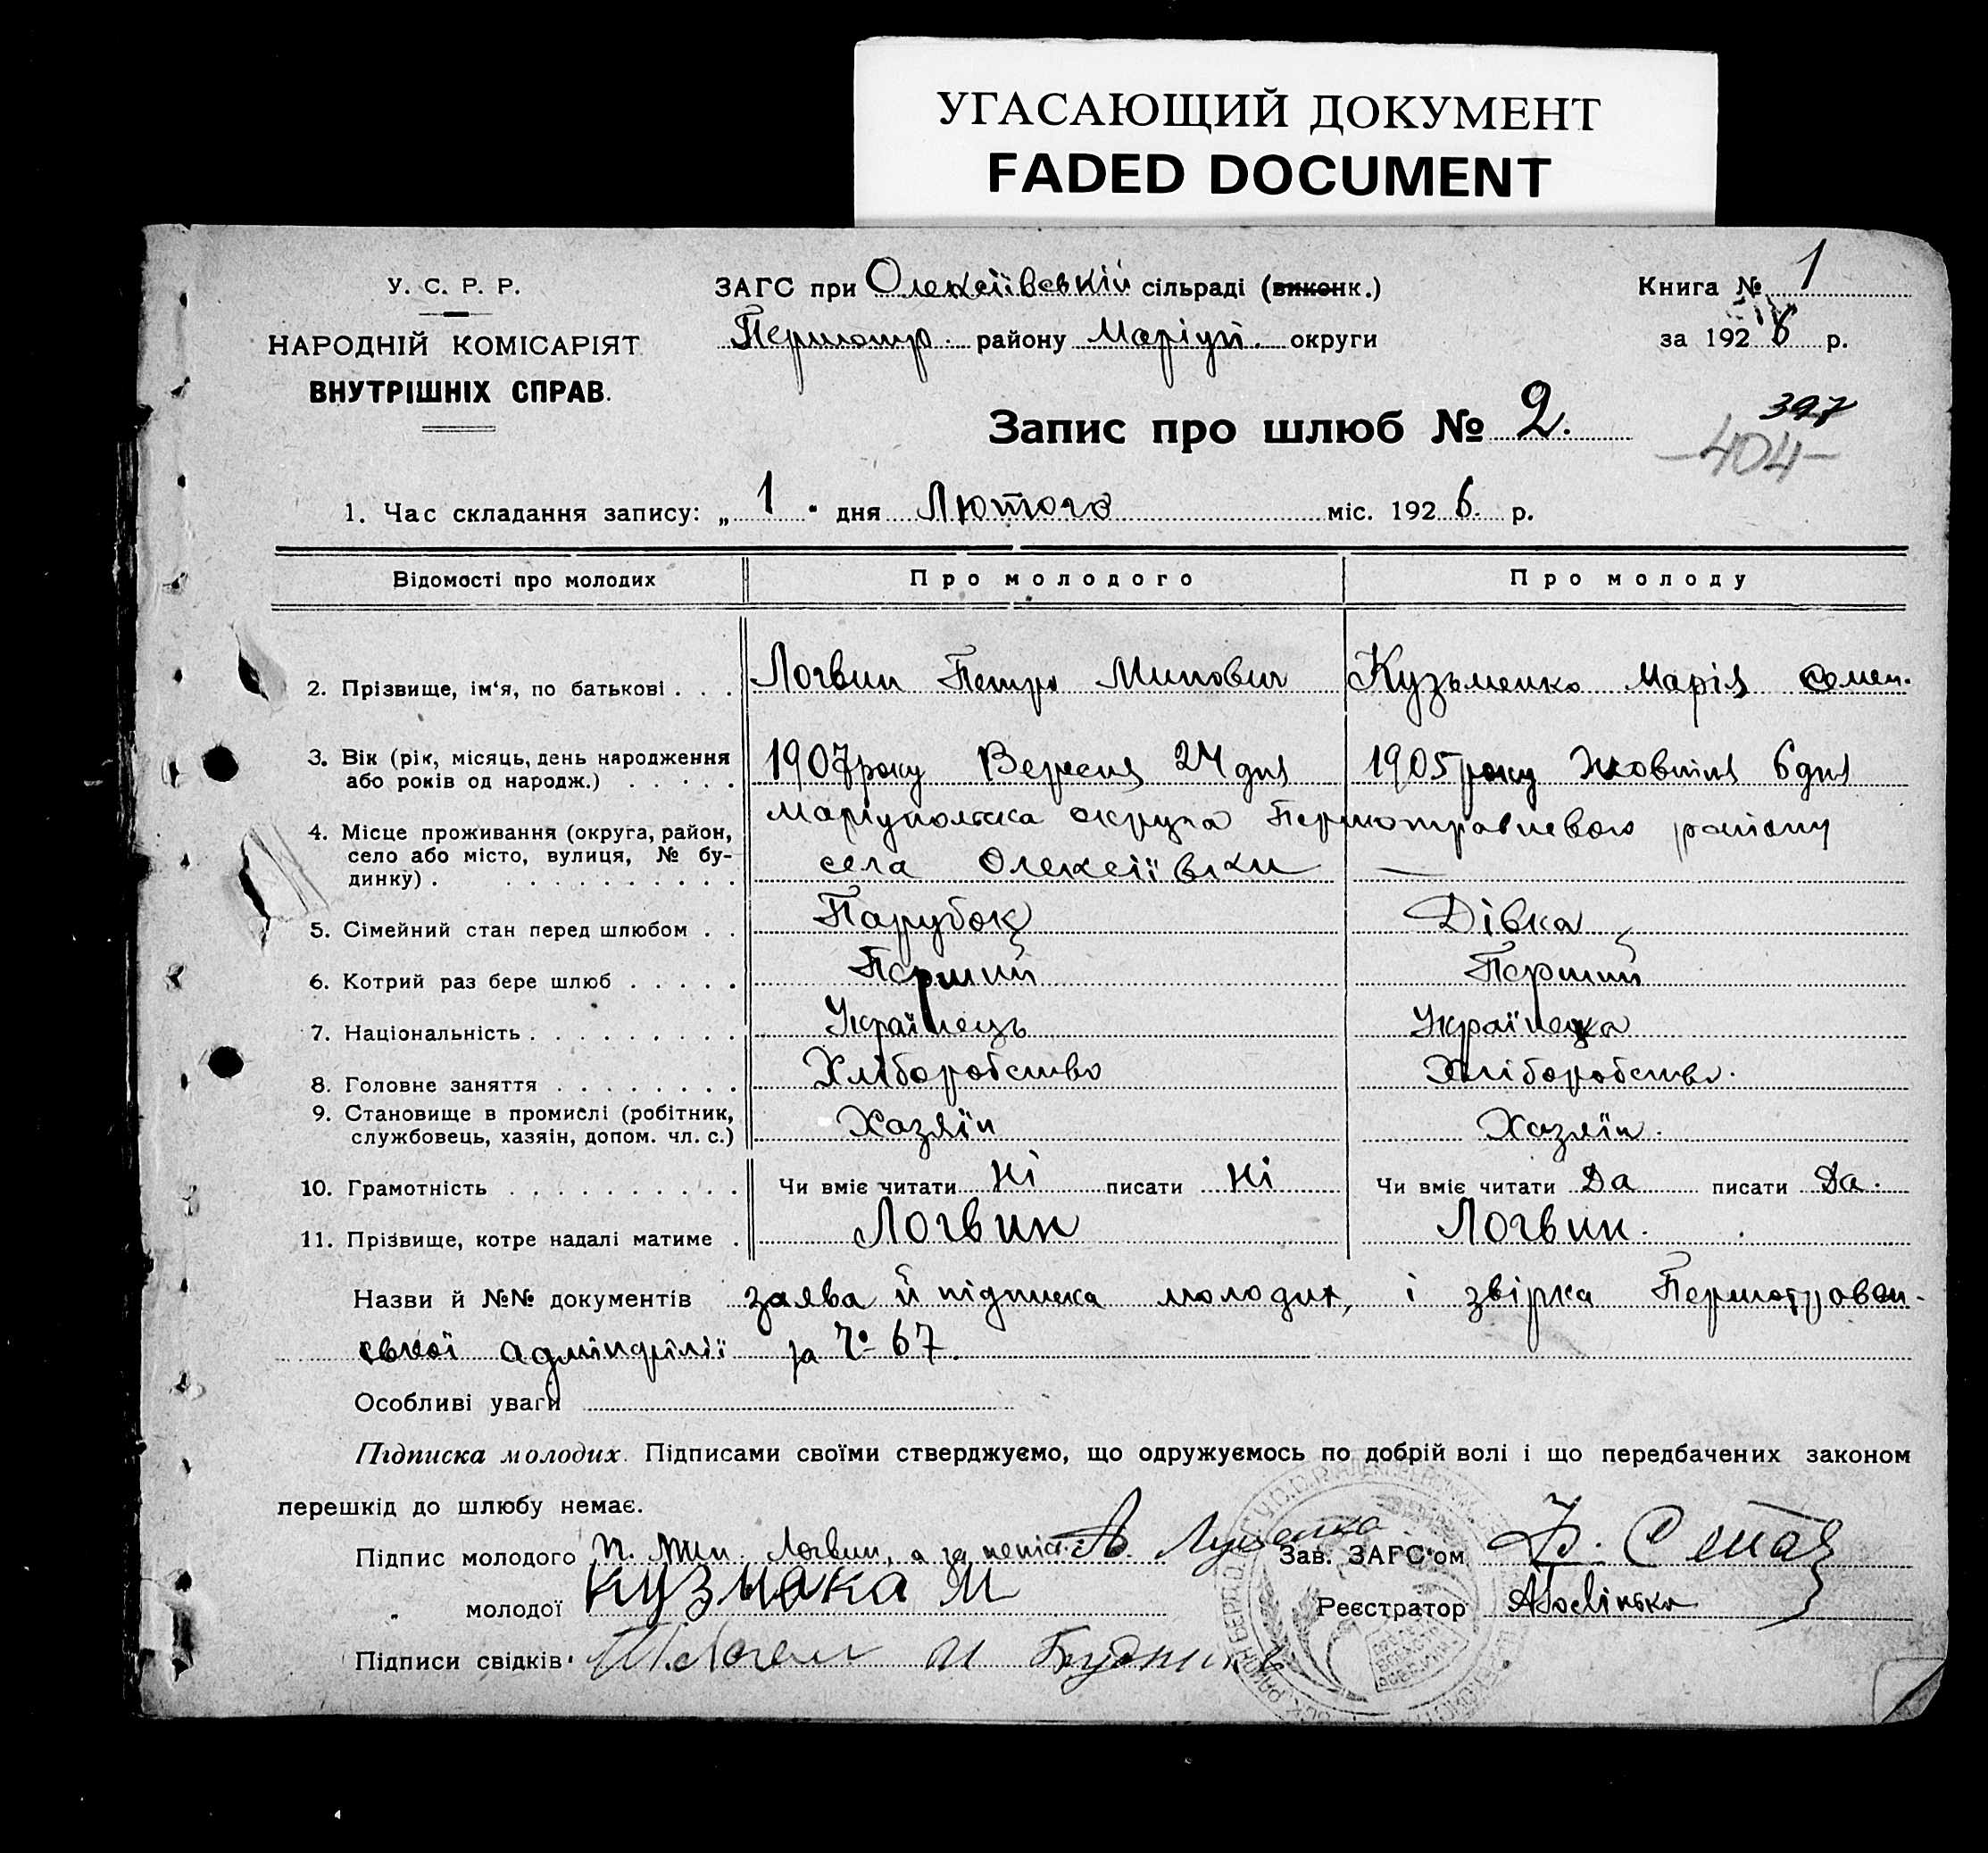 УГАСАЮЩИЙ ДОКУМЕНТ
FADED DOCUMENT
У. С. Р. Р.
НАРОДНІЙ КОМІСАРІЯТ
ВНУТРІШНІХ СПРАВ.
ЗАГС при Олексіївській сільраді (виконк.)
Першотр. району Маріуп. округи
Книга № 1
за 1926 р.
Запис про шлюб № 2.
397
-404-
1. Час складання запису: „ 1 " дня Лютого міс. 1926. р.
Відомості про молодих Про молодого Про молоду
2. Прізвище, ім'я, по батькові . . . Логвин Петро Минович Кузьменко Марія Семен.
3. Вік (рік, місяць, день народження 1907 року Вересня 24 дня 1905 року Жовтня 6 дня
або років од народж.) . . . . .
4. Місце проживання (округа, район, Маріупольська округа Першотравневого району
село або місто, вулиця, № бу- села Олексіївки —
динку) . . . . . . . . . . .
5. Сімейний стан перед шлюбом . . Парубок Дівка
6. Котрий раз бере шлюб . . . . . Перший Перший
7. Національність . . . . . . . . . Українець Українка
8. Головне заняття . . . . . . . . Хліборобство Хліборобство.
9. Становище в промислі (робітник, Хазяїн Хазяїн.
службовець, хазяїн, допом. чл. с.)
10. Грамотність . . . . . . . . . . Чи вміє читати Ні писати Ні Чи вміє читати Да писати Да.
11. Прізвище, котре надалі матиме . Логвин Логвин.
Назви й №№ документів заява й підписка молодих, і звірка Першотравен-
ської адмінфілії за № 67.
Особливі уваги
Підписка молодих. Підписами своїми стверджуємо, що одружуємось по добрій волі і що передбачених законом
перешкід до шлюбу немає.
Підпис молодого П. Мин. Логвин, а за непісь. Зав. ЗАГС'ом
" молодої М Реєстратор
Підписи свідків